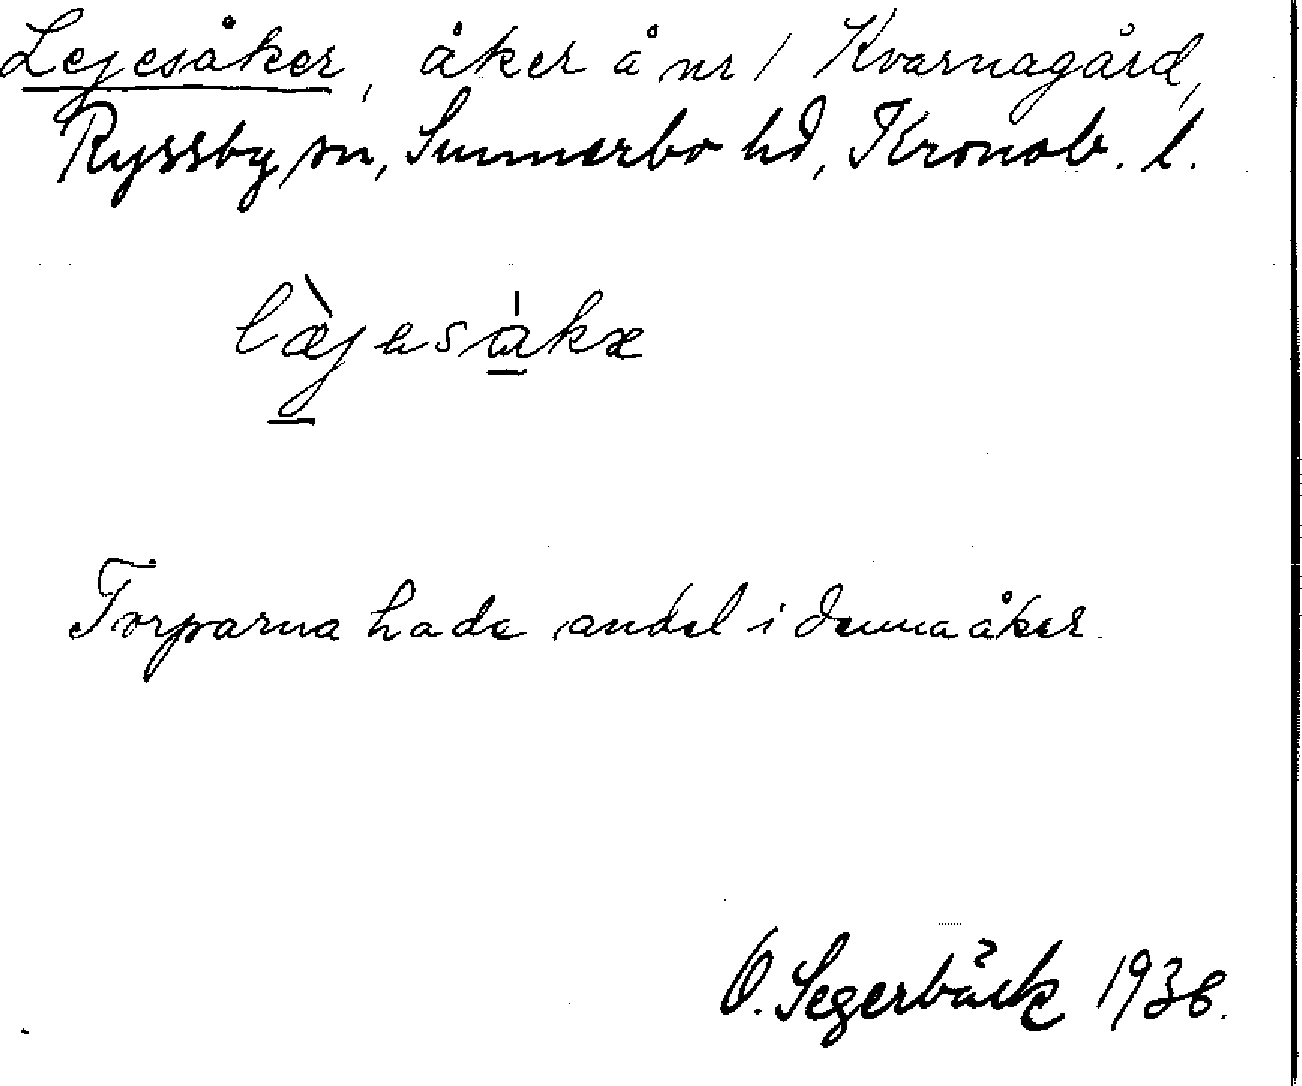 Lejesåker, åker å nr 1 Kvarnagård,
Ryssby sn, Sunnerbo hd, Kronob. l.
Torparna hade andel i denna åker.
O. Segerbäck 1936.